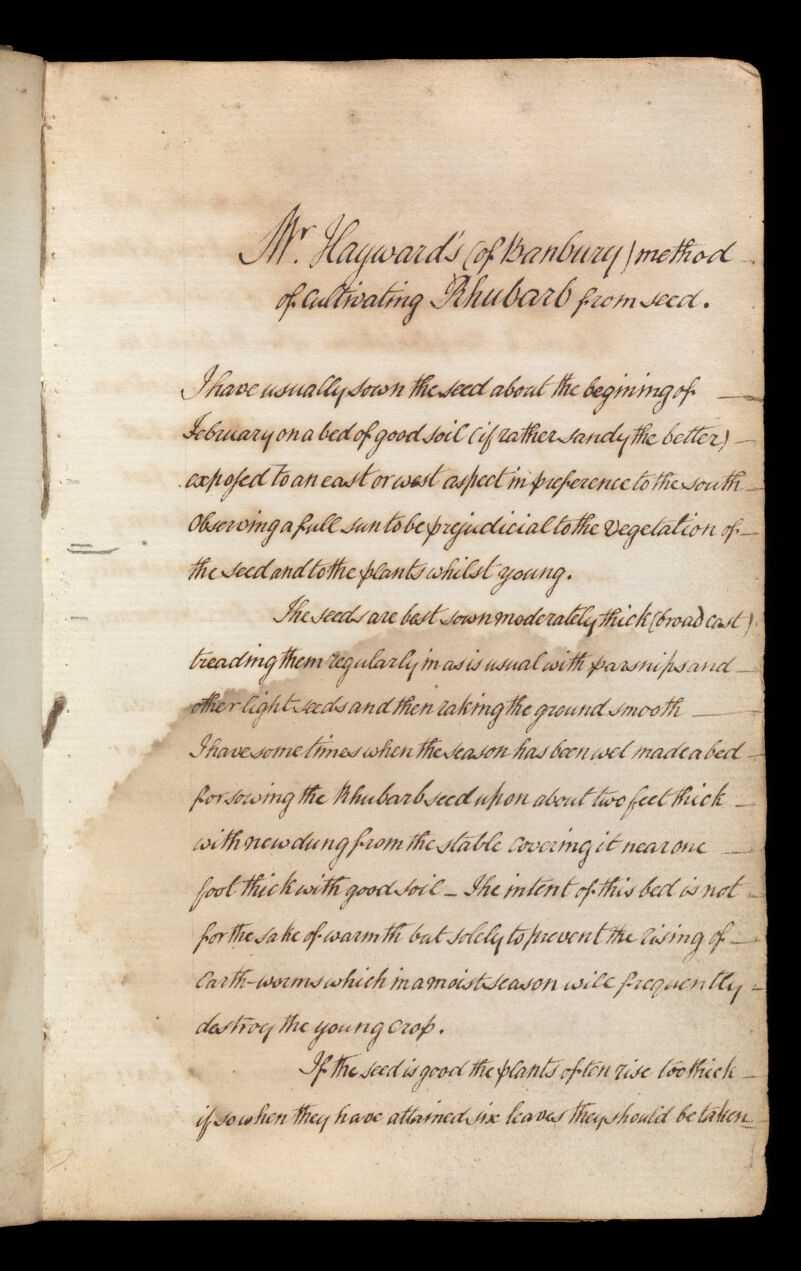 Mr. Hayward's (of Banbury) method
of Cultivating Rhubarb from seed.
I have usually sown the seed about the begining of
February on a bed of good soil (if rather sandy the better)
exposed to an east or west aspect in preference to the south
Observing a full sun to be prejudicial to the Vegetation of
the seed and to the plants whilst young.
The seeds are best sown moderately thick (broad cast)
treading them regularly in as is usual with parsnips and
other light seeds and then raking the ground smooth
I have sometimes when the season has been wet made a bed
for sowing the Rhubarb seed upon about two feet thick
with new dung from the stable covering it near one
foot thick with good soil – The intent of this bed is not
for the sake of warmth but solely to prevent the rising of
Earth-worms which in a moist season will frequently
destroy the young crop.
If the seed is good the plants often rise too thick
if so when they have attained six leaves they should be taken